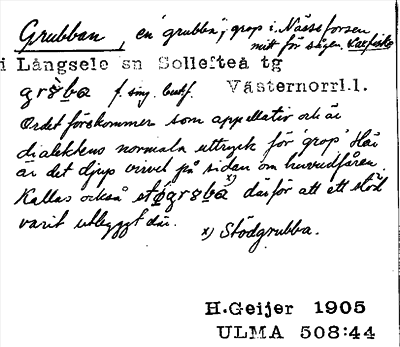 Grubban, en 'grubba', grop i Nässforsen
mitt för sågen. Laxfiske
i Långsele sn Sollefteå tg
grŏ̀ba f. sing. best f. Västernorrl.l.
Ordet förekommer som appellativ och är
dialektens normala uttryck för 'grop'. Här
är det djup virvel på sidan om huvudfåran.
Kallas också stø̀grŏba x) därför att ett stöd
varit utbyggt där. x) Stödgrubba.
H.Geijer 1905
ULMA 508:44